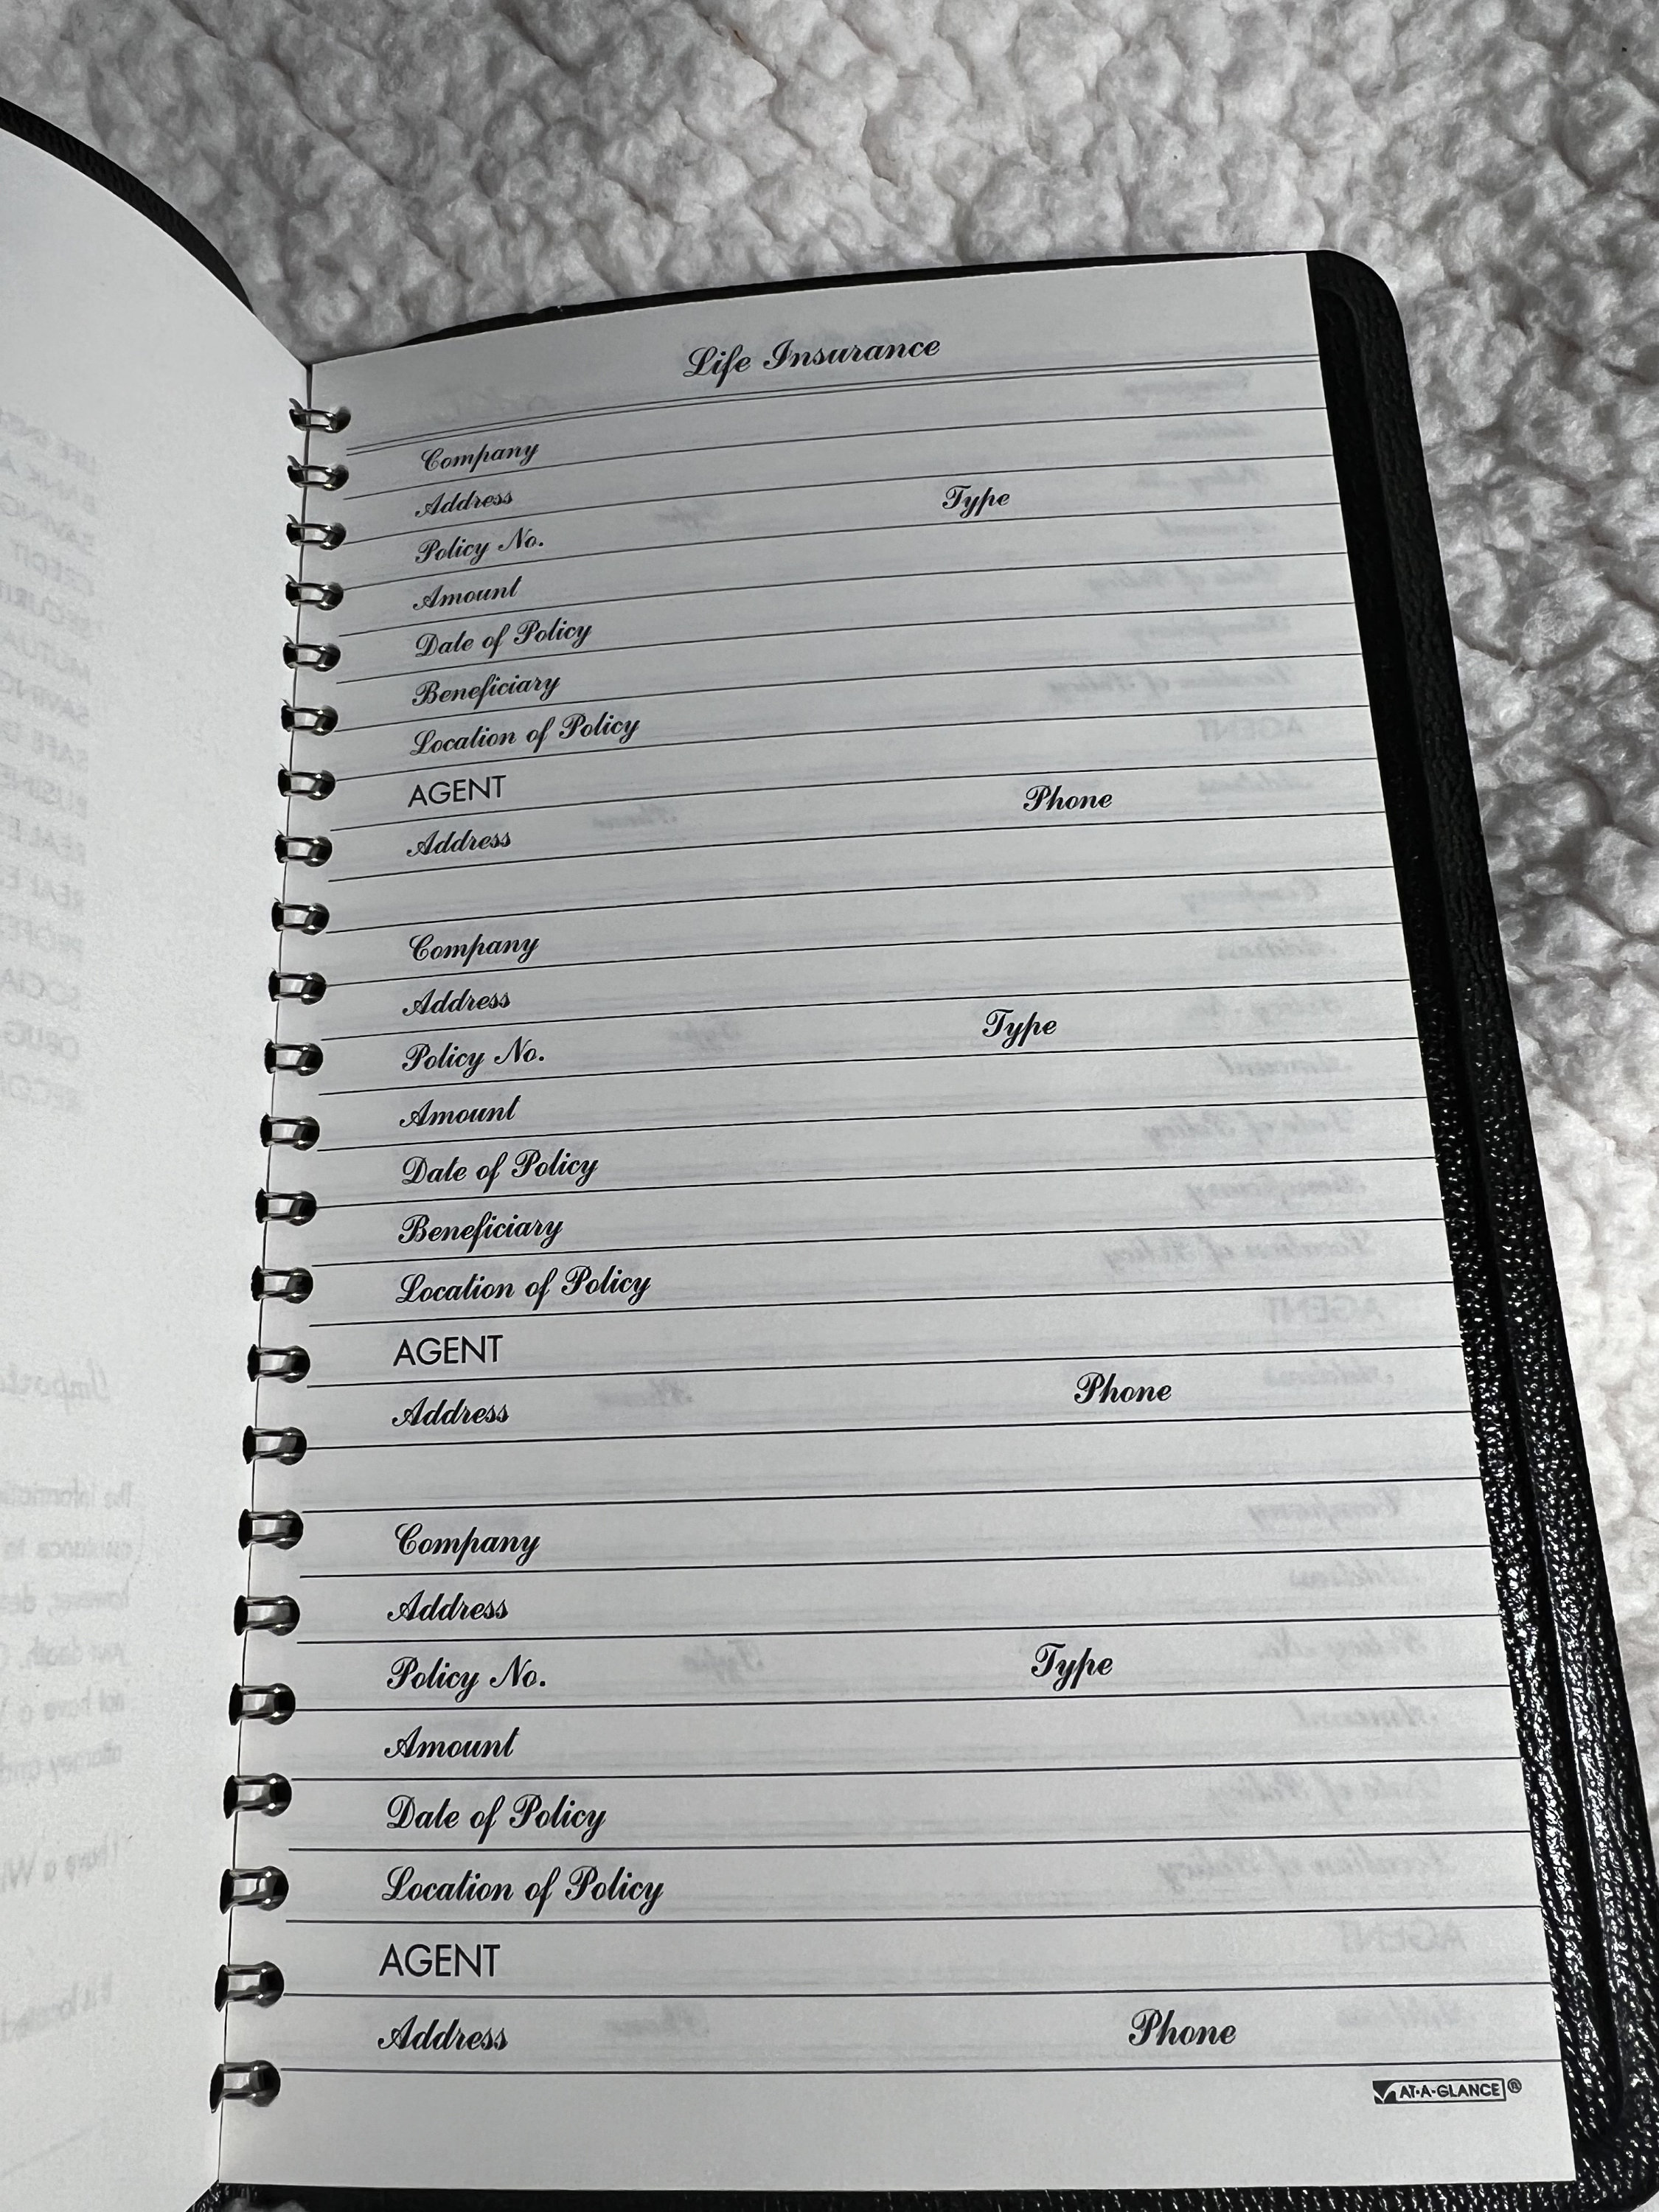 Life Insurance
Company
Address
Policy No. Type
Amount
Date of Policy
Beneficiary
Location of Policy
AGENT
Address Phone
Company
Address
Policy No. Type
Amount
Date of Policy
Beneficiary
Location of Policy
AGENT
Address Phone
Company
Address
Policy No. Type
Amount
Date of Policy
Location of Policy
AGENT
Address Phone
AT-A-GLANCE®